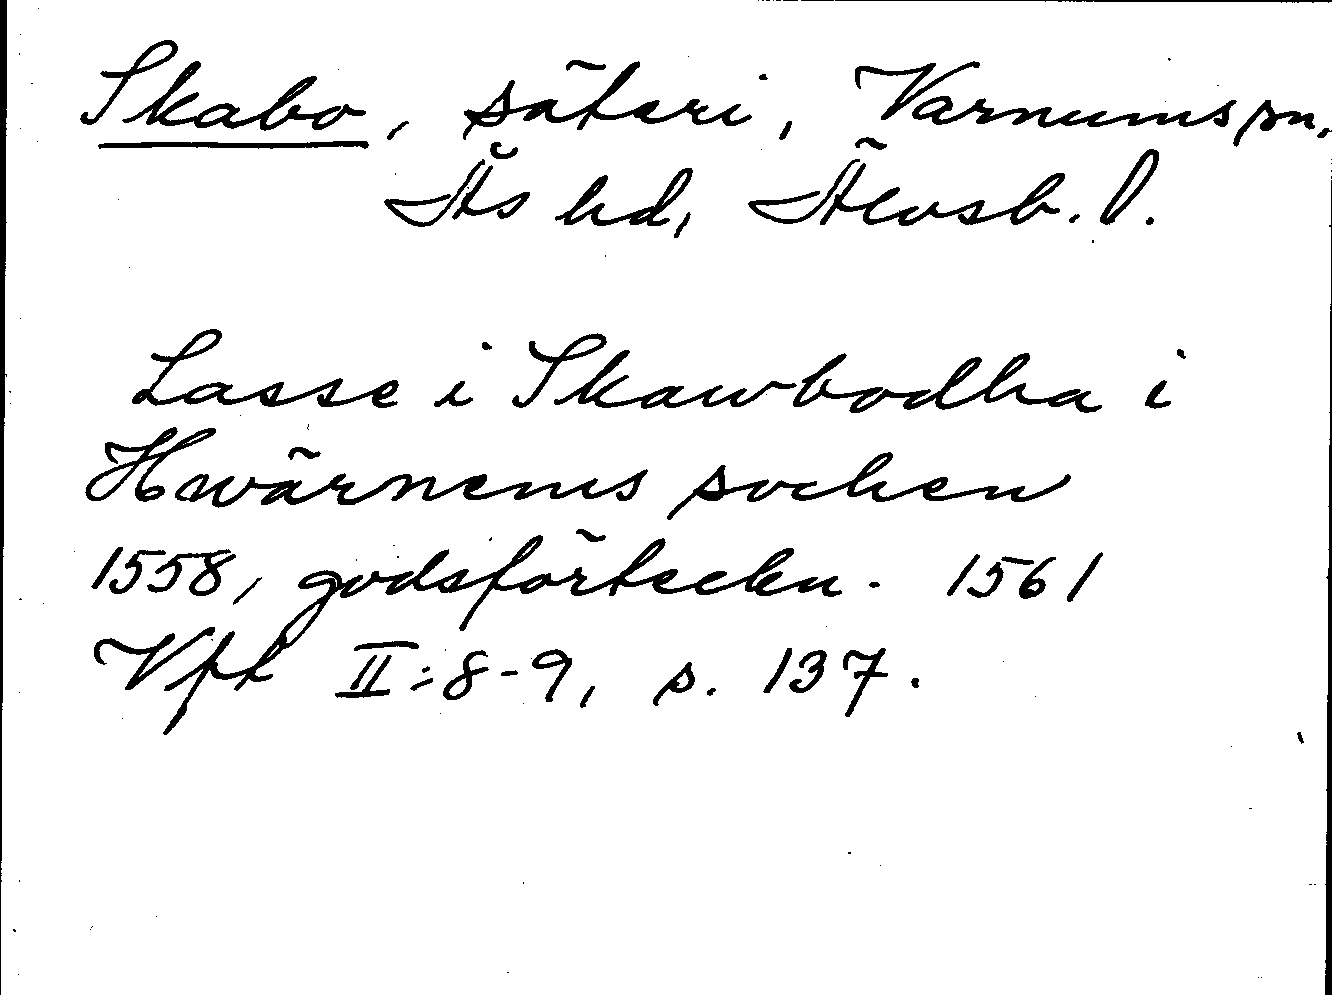 Skabo, säteri, Varnums sn,
Ås hd, Älvsb. l.
Lasse i Skawbodha i
Hwärnems socken
1558, godsförteckn. 1561
Vft II:8-9, s. 137.